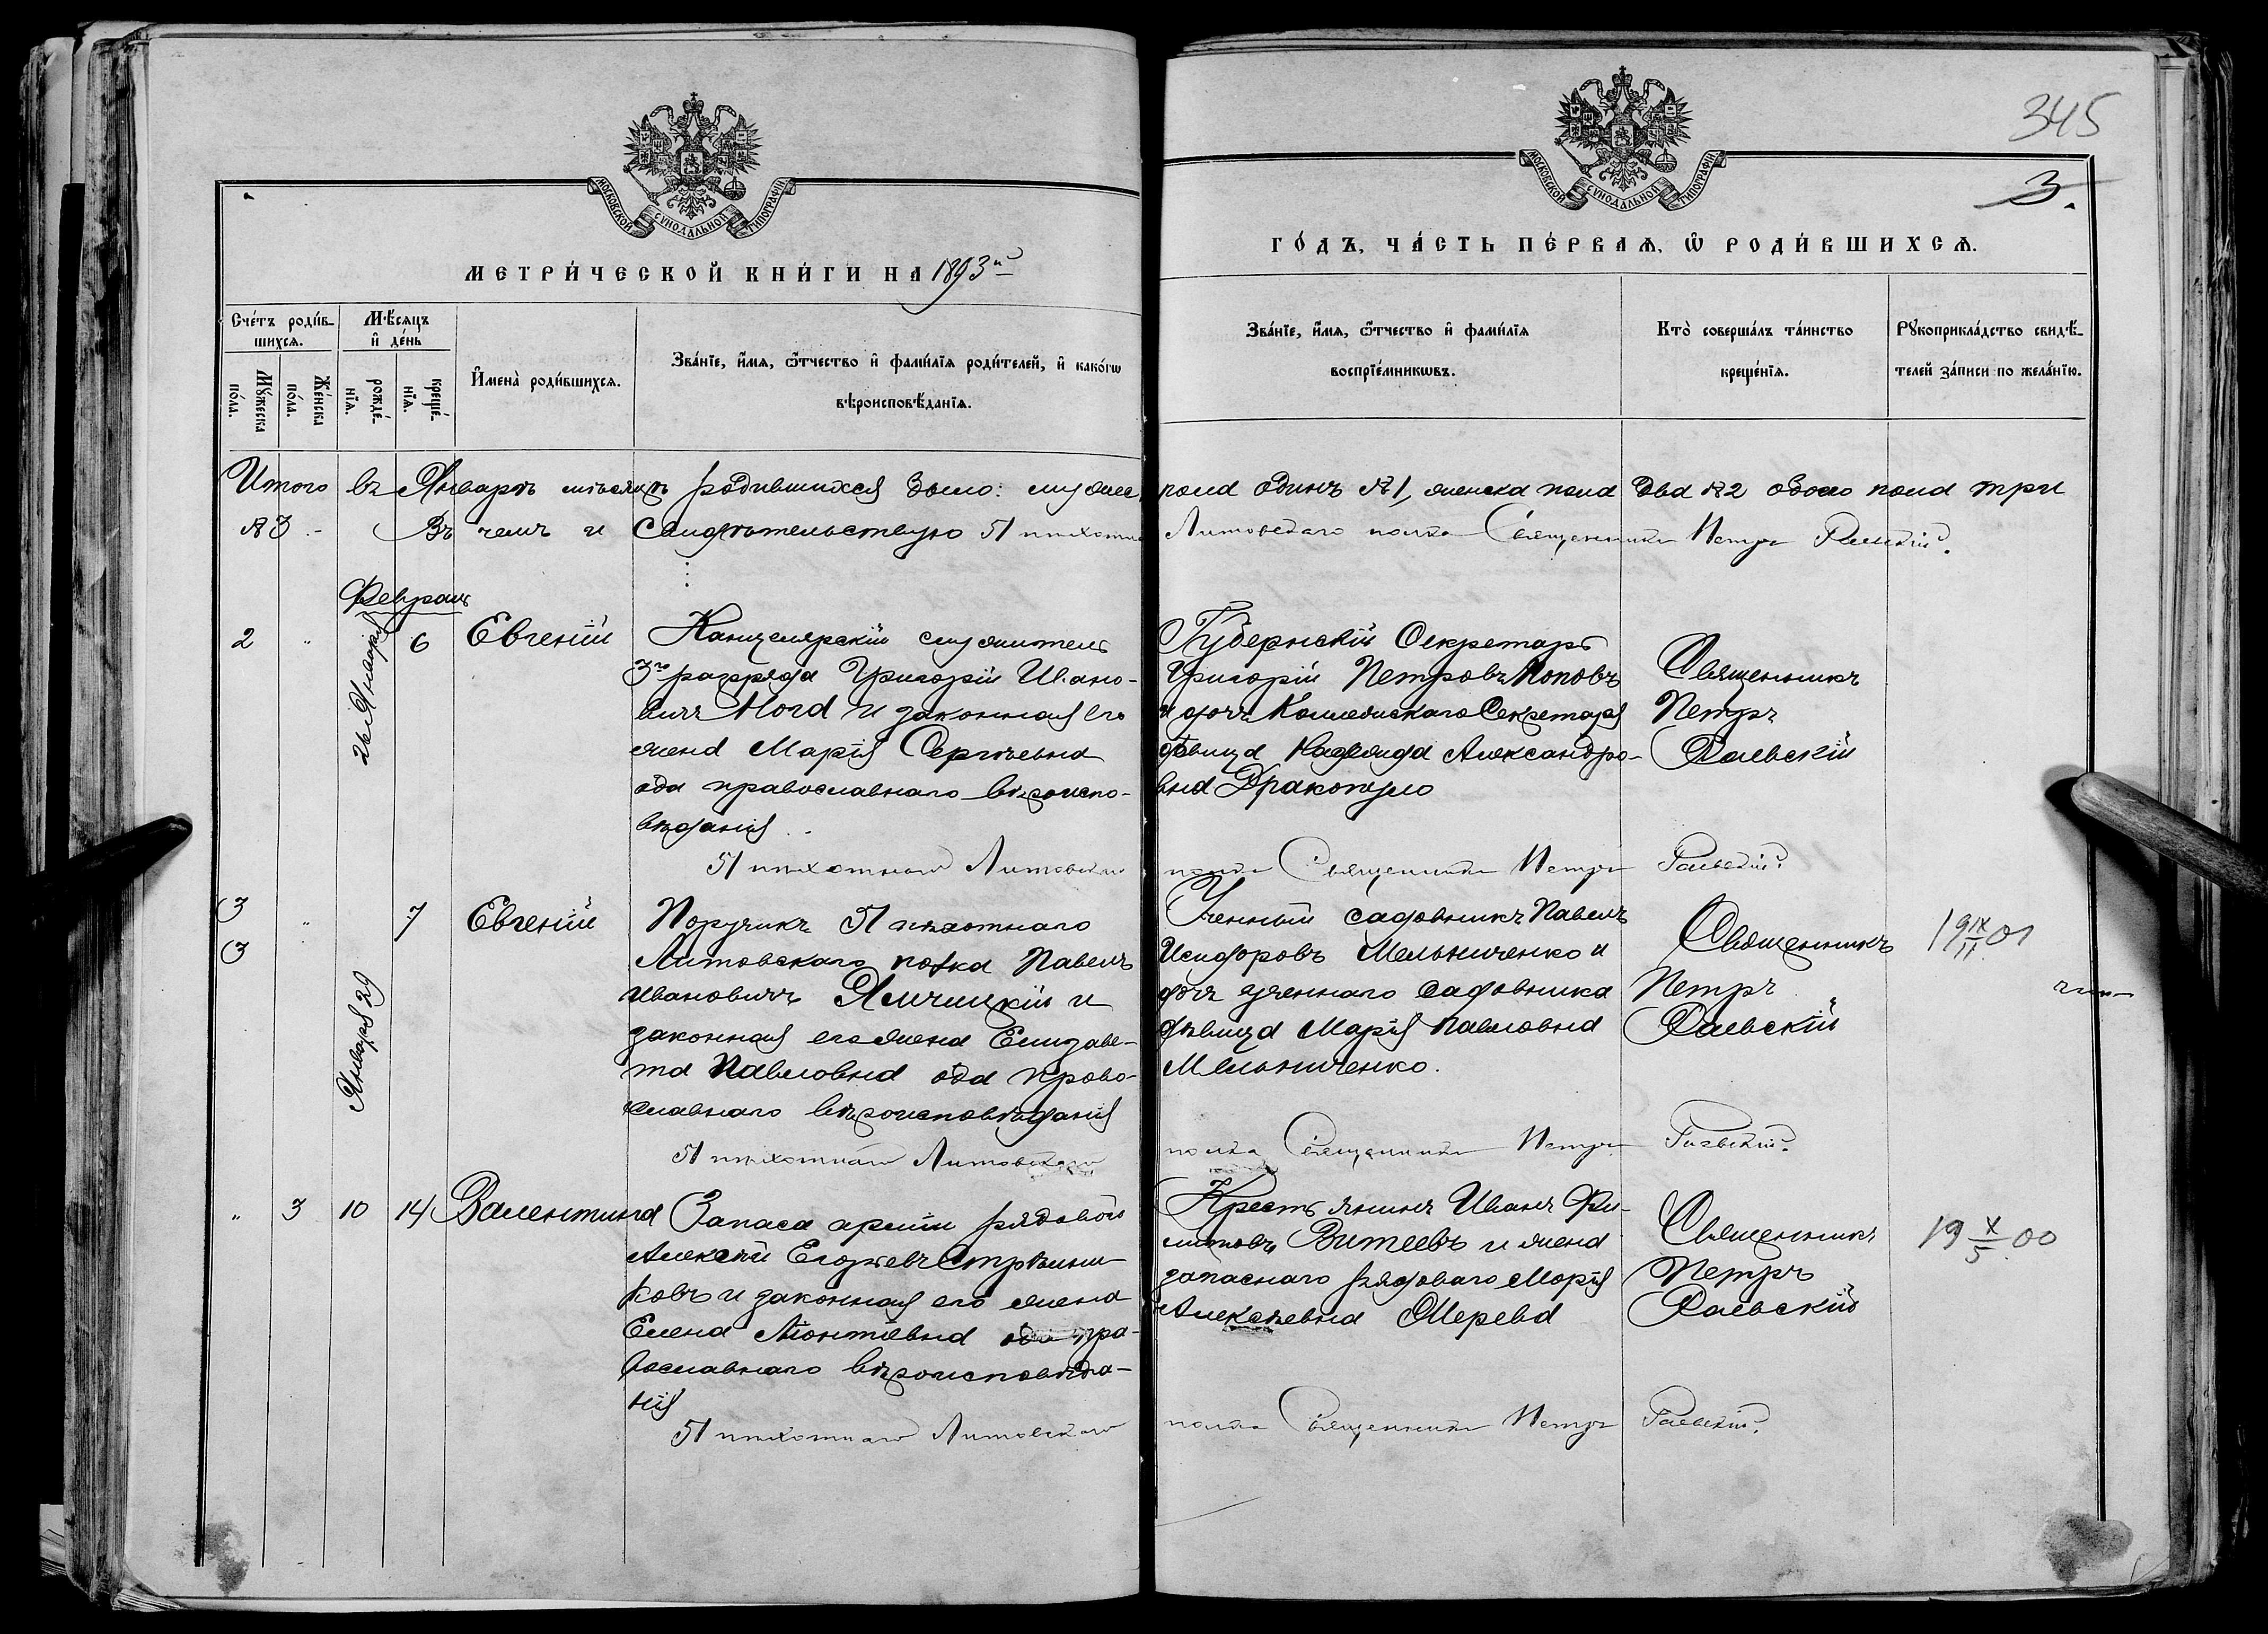 345
3.
МОСКОВСКОЙ СѴНОДАЛЬНОЙ ТИПОГРАФІИ
МОСКОВСКОЙ СѴНОДАЛЬНОЙ ТИПОГРАФІИ
МЕТРИ́ЧЕСКОЙ КНИ́ГИ НА 1893й
ГО́ДЪ, ЧА́СТЬ ПЕ́РВАЯ, Ѡ РОДИ́ВШИХСЯ.
Сче́тъ роди́в-
шихся.
Мꙋ́жеска
по́ла.
Же́нска
по́ла.
Мѣ́сяцъ
и҆ де́нь
рожде́-
нїя.
креще́-
нїя.
И҆мена̀ роди́вшихся.
Зва́нїе, и҆́мя, ѻ҆́тчество и҆ фами́лїя роди́телей, и҆ како́гѡ
вѣроисповѣ́данїя.
Зва́нїе, и҆́мя, ѻ҆́тчество и҆ фами́лїя
воспрїе́мникѡвъ.
Кто̀ соверша́лъ та́инство
креще́нїя.
Рꙋкоприкла́дство свидѣ́-
телей за́писи по жела́нїю.
Итого въ Январѣ мѣсяцѣ родившихся было: мужес. пола одинъ №1, женска пола два №2 обоего пола три
№3.- Въ чемъ и свидѣтельствую 51 пѣхотн. Литовскаго полка Священникъ Петръ Раевскій.
Февраль
2 " 26 Января 6 Евгеній
Канцелярскій служитель
3го разряда Григорій Ивано-
вичъ
и законная его
жена Марія Сергѣевна
оба православнаго вѣроиспо-
вѣданія.
Губернскій Секретарь
Григорій Петровъ Поповъ
и дочь Коллежскаго Секретаря
дѣвица Надежда Александро-
вна
Священникъ
Петръ
Раевскій
51 пѣхотнаго Литовскаго полка Священникъ Петръ Раевскій.
3 " Января 29 7 Евгеній
3
Поручикъ 51 пѣхотнаго
Литовскаго полка Павелъ
Ивановичъ Ямчицкій и
законная его жена Елизаве-
та Павловна оба право-
славнаго вѣроисповѣданія
Ученный садовникъ Павелъ
Исидоровъ Мельниченко и
дочь ученнаго садовника
дѣвица Марія Павловна
Мельниченко.
Священникъ
Петръ
Раевскій
19 IX/11 01
51 пѣхотнаго Литовскаго полка Священникъ Петръ Раевскій.
" 3 10 14 Валентина
Запаса арміи рядовой
Алексѣй Егоровъ Стрѣльни-
ковъ и законная его жена
Елена Леонтіевна оба пра-
вославнаго вѣроисповѣда-
нія
Крестьянинъ Иванъ Фи-
липовъ Витеевъ и жена
запаснаго рядоваго Марія
Алексѣевна
Священникъ
Петръ
Раевскій
19 X/5 00
51 пѣхотнаго Литовскаго полка Священникъ Петръ Раевскій.